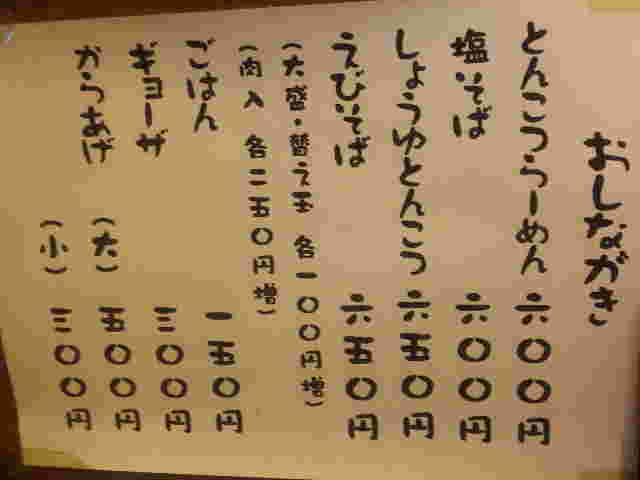 おしながき
とんこつらーめん 六〇〇円
塩そば 六〇〇円
しょうゆとんこつ 六五〇円
えびそば 六五〇円
(大盛・替え玉 各一〇〇円増)
(肉入 各二五〇円増)
ごはん 一五〇円
ギョーザ 三〇〇円
からあげ (大) 五〇〇円
(小) 三〇〇円